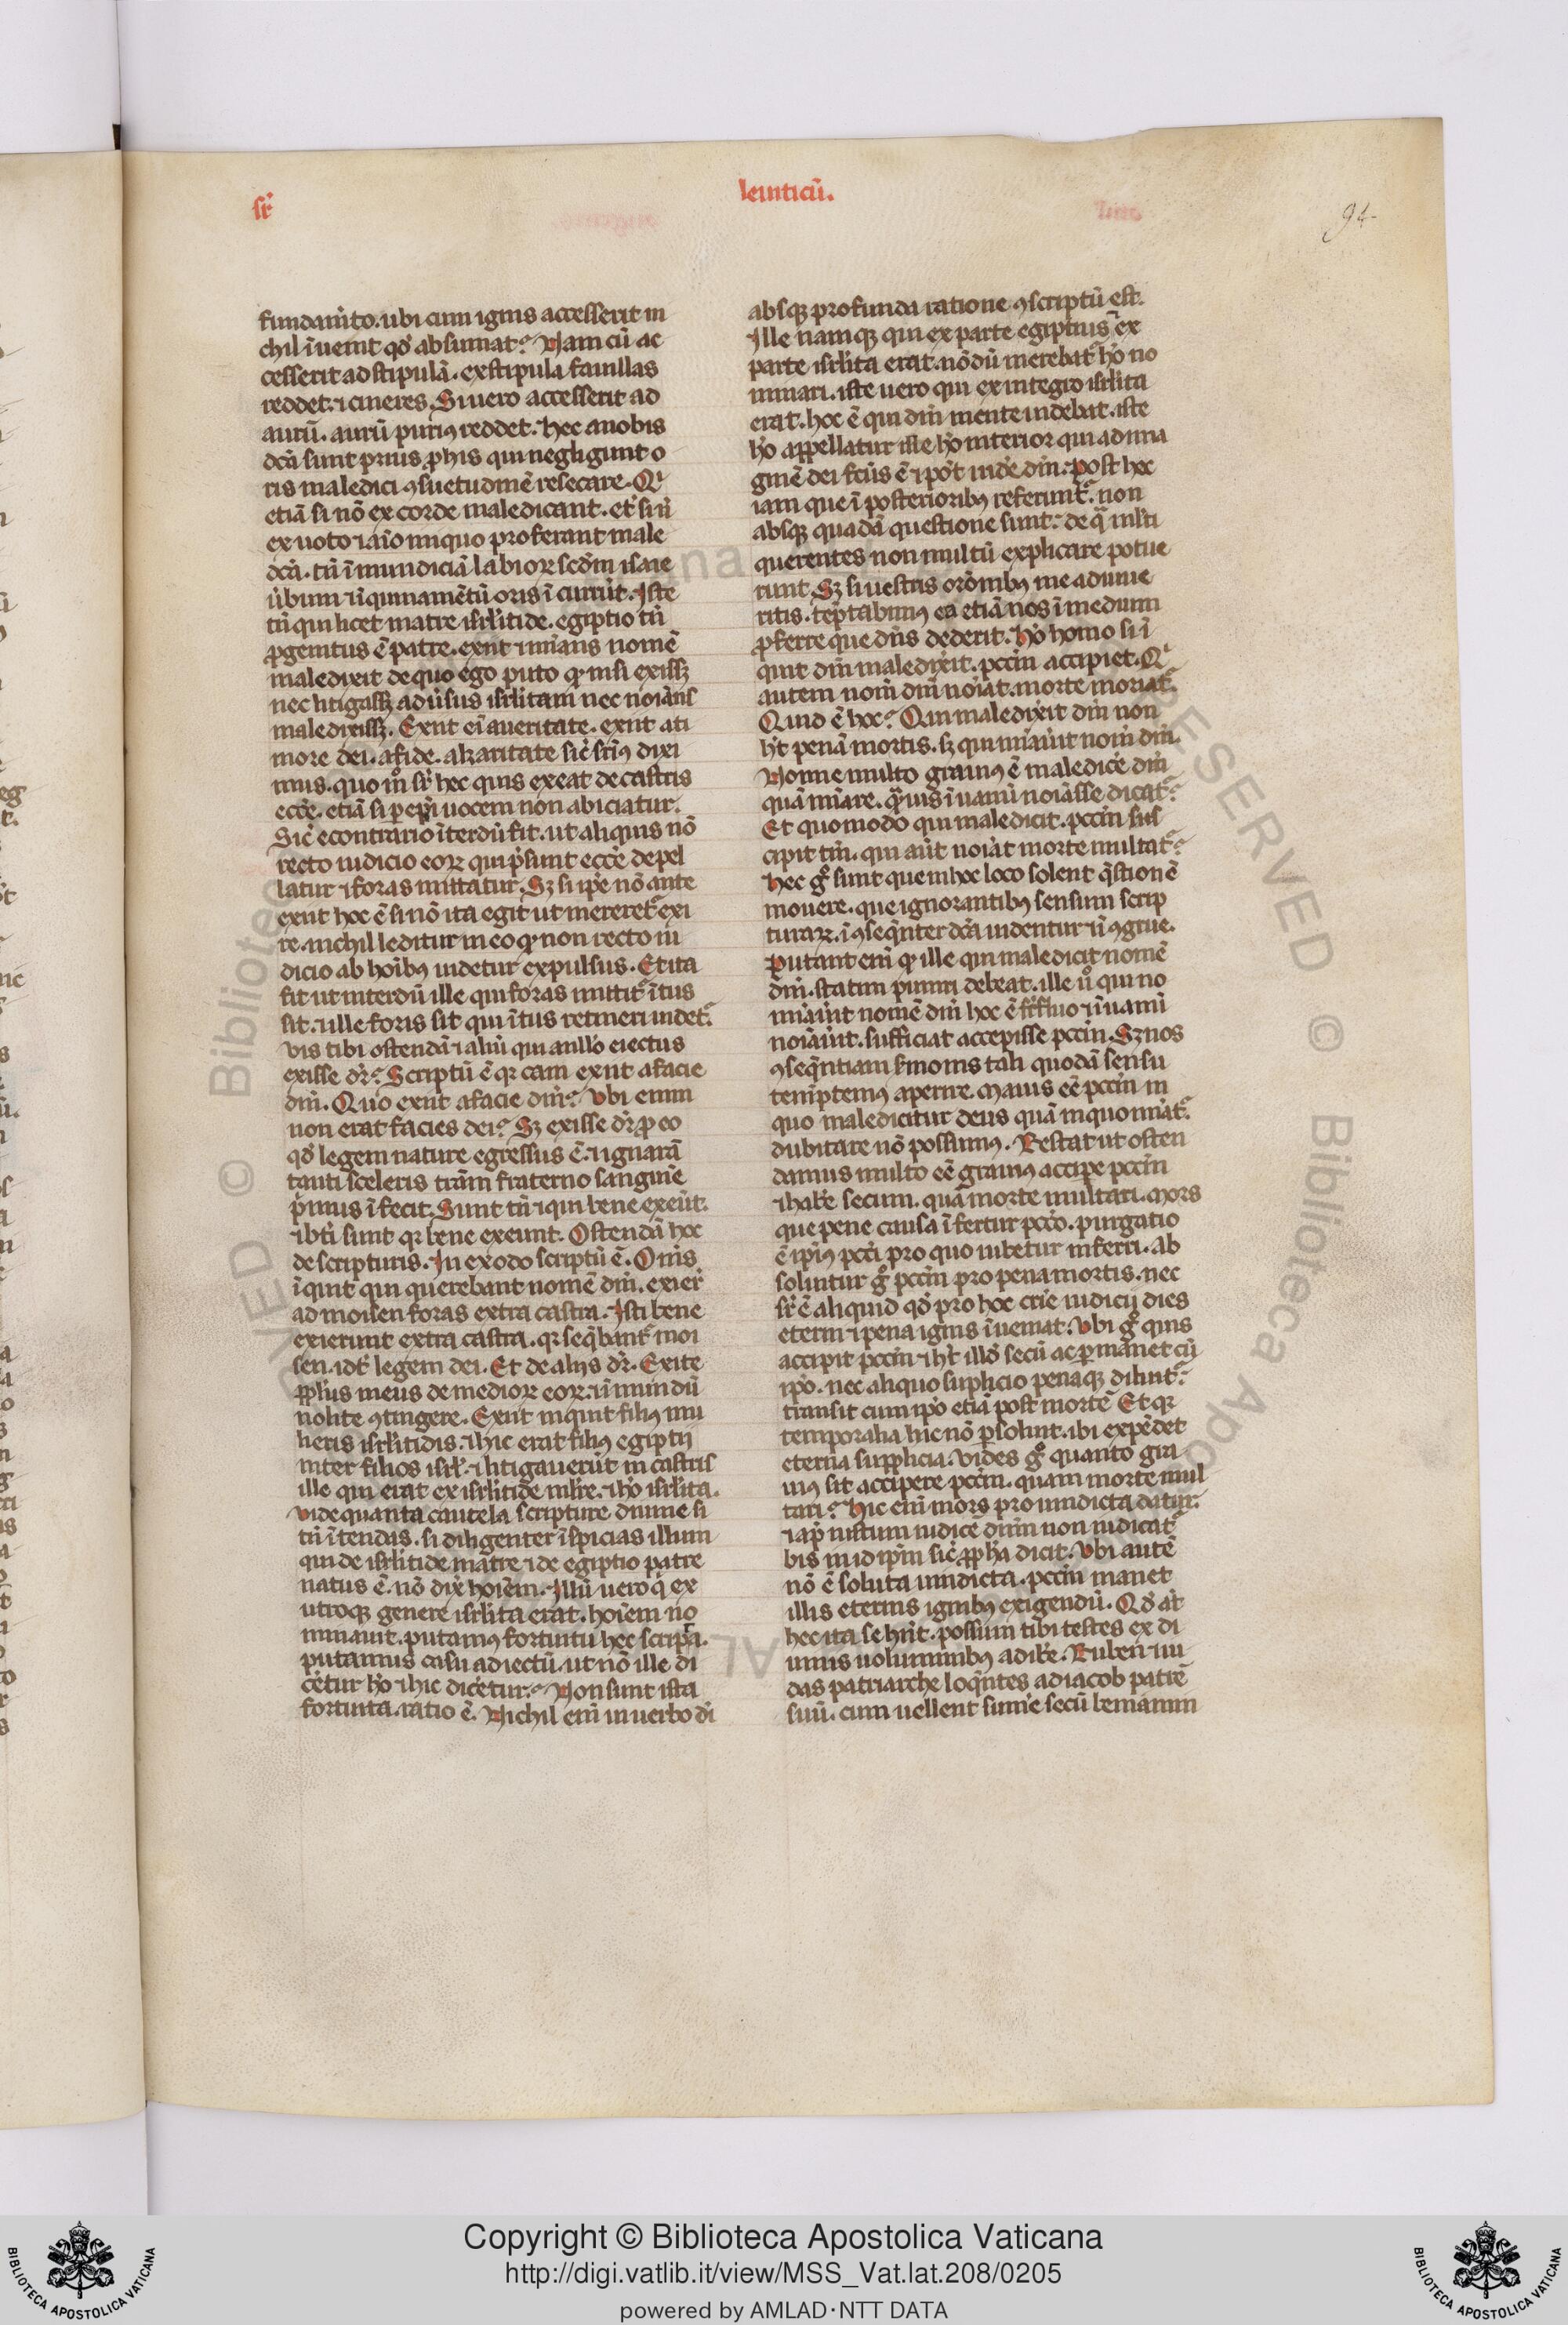 sr̄
leuiticū.
94
fundam̄to. ubi cum ignis accesserit ni
chil īuenit qd̓ absumat? Nam cū ac
cesserit ad stipulā. ex stipula fauillas
reddet. ⁊ cineres. Si uero accesserit ad
aurū. aurū purius reddet. Hec a nobis
dc̄a sunt prius ꝓ his qui negligunt o
ris maledici ꝯsuetudinē resecare. Q̓
etiā si nō ex corde maledicant. et si n̄
ex uoto ⁊ aīo iniquo proferant male
dc̄a. tn̄ īmundiciā labioꝝ scd̄m isaie
u̓bum ⁊ īquinamētū oris īcurrūt. Iste
tn̄ qui licet matre isrl̓itide. egiptio tn̄
ꝓgenitus ē patre. exiit ⁊ nīans nomē
maledixit de quo ego puto ꝙ nisi exissꝫ
nec litigassꝫ adu̓sus isrl̓itam nec noīans
maledixissꝫ. Exiit eī a ueritate. exiit a ti
more dei. a fide. a karitate sic̄ sr̄ius dixi
mus. quo m̊ sr̄ hec quis exeat de castris
ecc̄e. etiā si ꝑ ep̄i uocem non abiciatur.
Sic̄ econtrario īterdū fit. ut aliquis nō
recto iudicio eoꝝ qui p̄sunt ecc̄e depel
latur ⁊ foras mittatur. Sꝫ si ip̄e nō ante
exiit hoc ē si nō ita egit ut mereret᷑ exi
re. nichil leditur in eo ꝙ non recto iu
dicio ab hoībꝰ uidetur expulsus. Et ita
fit ut interdū ille qui foras mittit᷑ ītus
sit. ⁊ ille foris sit qui ītus retineri uidet᷑.
Vis tibi ostendā ⁊ aliū qui a nllo̓ eiectus
exisse dr̄? Scriptū ē qꝛ cain exiit a facie
dn̄i. Quo exiit a facie dn̄i? Vbi enim
non erat facies dei? Sꝫ exisse dr̄ ꝓ eo
qd̓ legem nature egressus ē. ⁊ ignarā
tanti sceleris terrā̄m fraterno sanguīe
p̓mus īfecit. Sunt tn̄ ⁊ qui bene exeūt.
⁊ bt̄i sunt qꝛ bene exeunt. Ostendā hoc
de scripturis. In exodo scriptū ē. Om̄s
īquit qui querebant nomē dn̄i. exier̄
ad moysen foras extra castra. Isti bene
exierunt extra castra. qꝛ seq̄bant᷑ moi
sen. id ē legem dei. Et de aliis dr̄. Exite
ppl̓us meus de medioꝝ eoꝝ. ⁊ īmundū
nolite ꝯtingere. Exiit inquit filiꝰ mu
lieris isrl̓itidis. ⁊ hic erat filiꝰ egiptij
inter filios isrl̓. ⁊ litigauerūt in castris
ille qui erat ex isrl̓itide ml̓re. ⁊ hō isrl̓ita.
Vide quanta cautela scripture diuine si
tn̄ ītendas. si diligenter īspicias illum
qui de isrl̓itide matre ⁊ de egiptio patre
natus ē. nō dix̄ hoīem. Illū uero q̓ ex
utroqꝫ genere isrl̓ita erat. hoīem no
minauit. putamꝰ fortuitu hec scripta.
putamus casu adiectū. ut nō ille di
cetur hō ⁊ hic dicetur? Non sunt ista
fortuita. ratio ē. Nichil eni in uerbo di
absqꝫ profunda ratione ꝯscriptū est.
Ille namqꝫ qui ex parte egiptius ex
parte isrl̓ita erat. nōdū merebat᷑ hō no
minari. iste uero qui ex integro isrl̓ita
erat. hoc ē qui dm̄ mente uidebat. iste
hō appellatur ille hō interior qui ad ima
ginē dei fcūs ē ⁊ pōt uidē dm̄. Post hec
iam que ī posterioribꝰ referunt᷑. non
absqꝫ quadā questione sunt. de q̄ m̓lti
querentes non multū explicare potue
runt. Sꝫ si uestris or̄onibꝰ me adiuue
ritis. tēptabimꝰ ea etiā nos ī medium
ꝓferre que dn̄s dederit. Hō homo si ī
quit dm̄ maledixerit. pccm̄ accipiet. Q̓
autem nom̄ dn̄i noīat. morte moriat᷑.
Quid ē hoc? Qui maledixerit dm̄ non
ht̄ penā mortis. sꝫ qui nīauit nom̄ dn̄i.
Nonne multo grauiꝰ ē maledicere dm̄
quā nīare. q̄uis ī uanū noīasse dicat᷑?
Et quomodo qui maledicit. pccm̄ sus
cipit tm̄. qui aūt noīat morte multat᷑?
Hec g̊ sunt que in hoc loco solent q̄stionē
mouere. que ignorantibꝰ sensum scrip
turaꝝ. īꝯseq̄nter dc̄a uidentur ⁊ īꝯgrue.
Putant eni ꝙ ille qui maledicit nomē
dn̄i. statim puniri debeat. ille ů qui no
mīauit nomē dn̄i hoc ē suꝑfluo ⁊ ī uanū
noīauit. sufficiat accepisse pccm̄. Sꝫ nos
ꝯseq̄ntiam sermonis tali quodā sensu
temptemꝰ aperire. Maius eē pccm̄ in
quo maledicitur deus quā in quo nīat᷑.
dubitare nō possumꝰ. Restat ut osten
damus multo eē grauiꝰ accipe pccm̄
⁊ habere secum. quā morte multari. Mors
que pene causa īfertur pcc̄o. purgatio
ē ipīꝰ pcc̄i pro quo iubetur inferri. Ab
soluitur g̊ pccm̄ pro pena mortis. nec
sr̄ē aliquid qd̓ pro hoc crīe iudicij dies
eterni ⁊ pena ignis īueniat. Vbi g̊ quis
accipit pccm̄ ⁊ ht̄ illd̓ secū ac ꝑmanet cū
ip̄o. nec aliquo suplicio penaqꝫ diluit᷑.
transit cum ip̄o etiā post mortē. Et qꝛ
temporalia hic nō ꝑsoluit. ibi expēdet
eterna supplicia. Vides g̊ quanto gra
uiꝰ sit accipere pccm̄. quam morte mul
tari? Hic eni mors pro uindicta datur.
⁊ ap̄ iustum iudicē dn̄m non iudicat᷑
bis in idip̄m sic̄ ꝓph̄a dicit. Vbi autē
nō ē soluta uindicta. pccm̄ manet
illis eternis ignibꝰ exigendū. Qd̓ at̄
hec ita se hn̄t. possum tibi testes ex di
uinis uoluminibꝰ adibere. Ruben ⁊ iu
das patriarche loq̄ntes ad iacob patrē
suū. cum uellent sumē secū beniamin
Copyright © Biblioteca Apostolica Vaticana
http://digi.vatlib.it/view/MSS_Vat.lat.208/0205
powered by AMLAD·NTT DATA
BIBLIOTECA APOSTOLICA VATICANA
BIBLIOTECA APOSTOLICA VATICANA